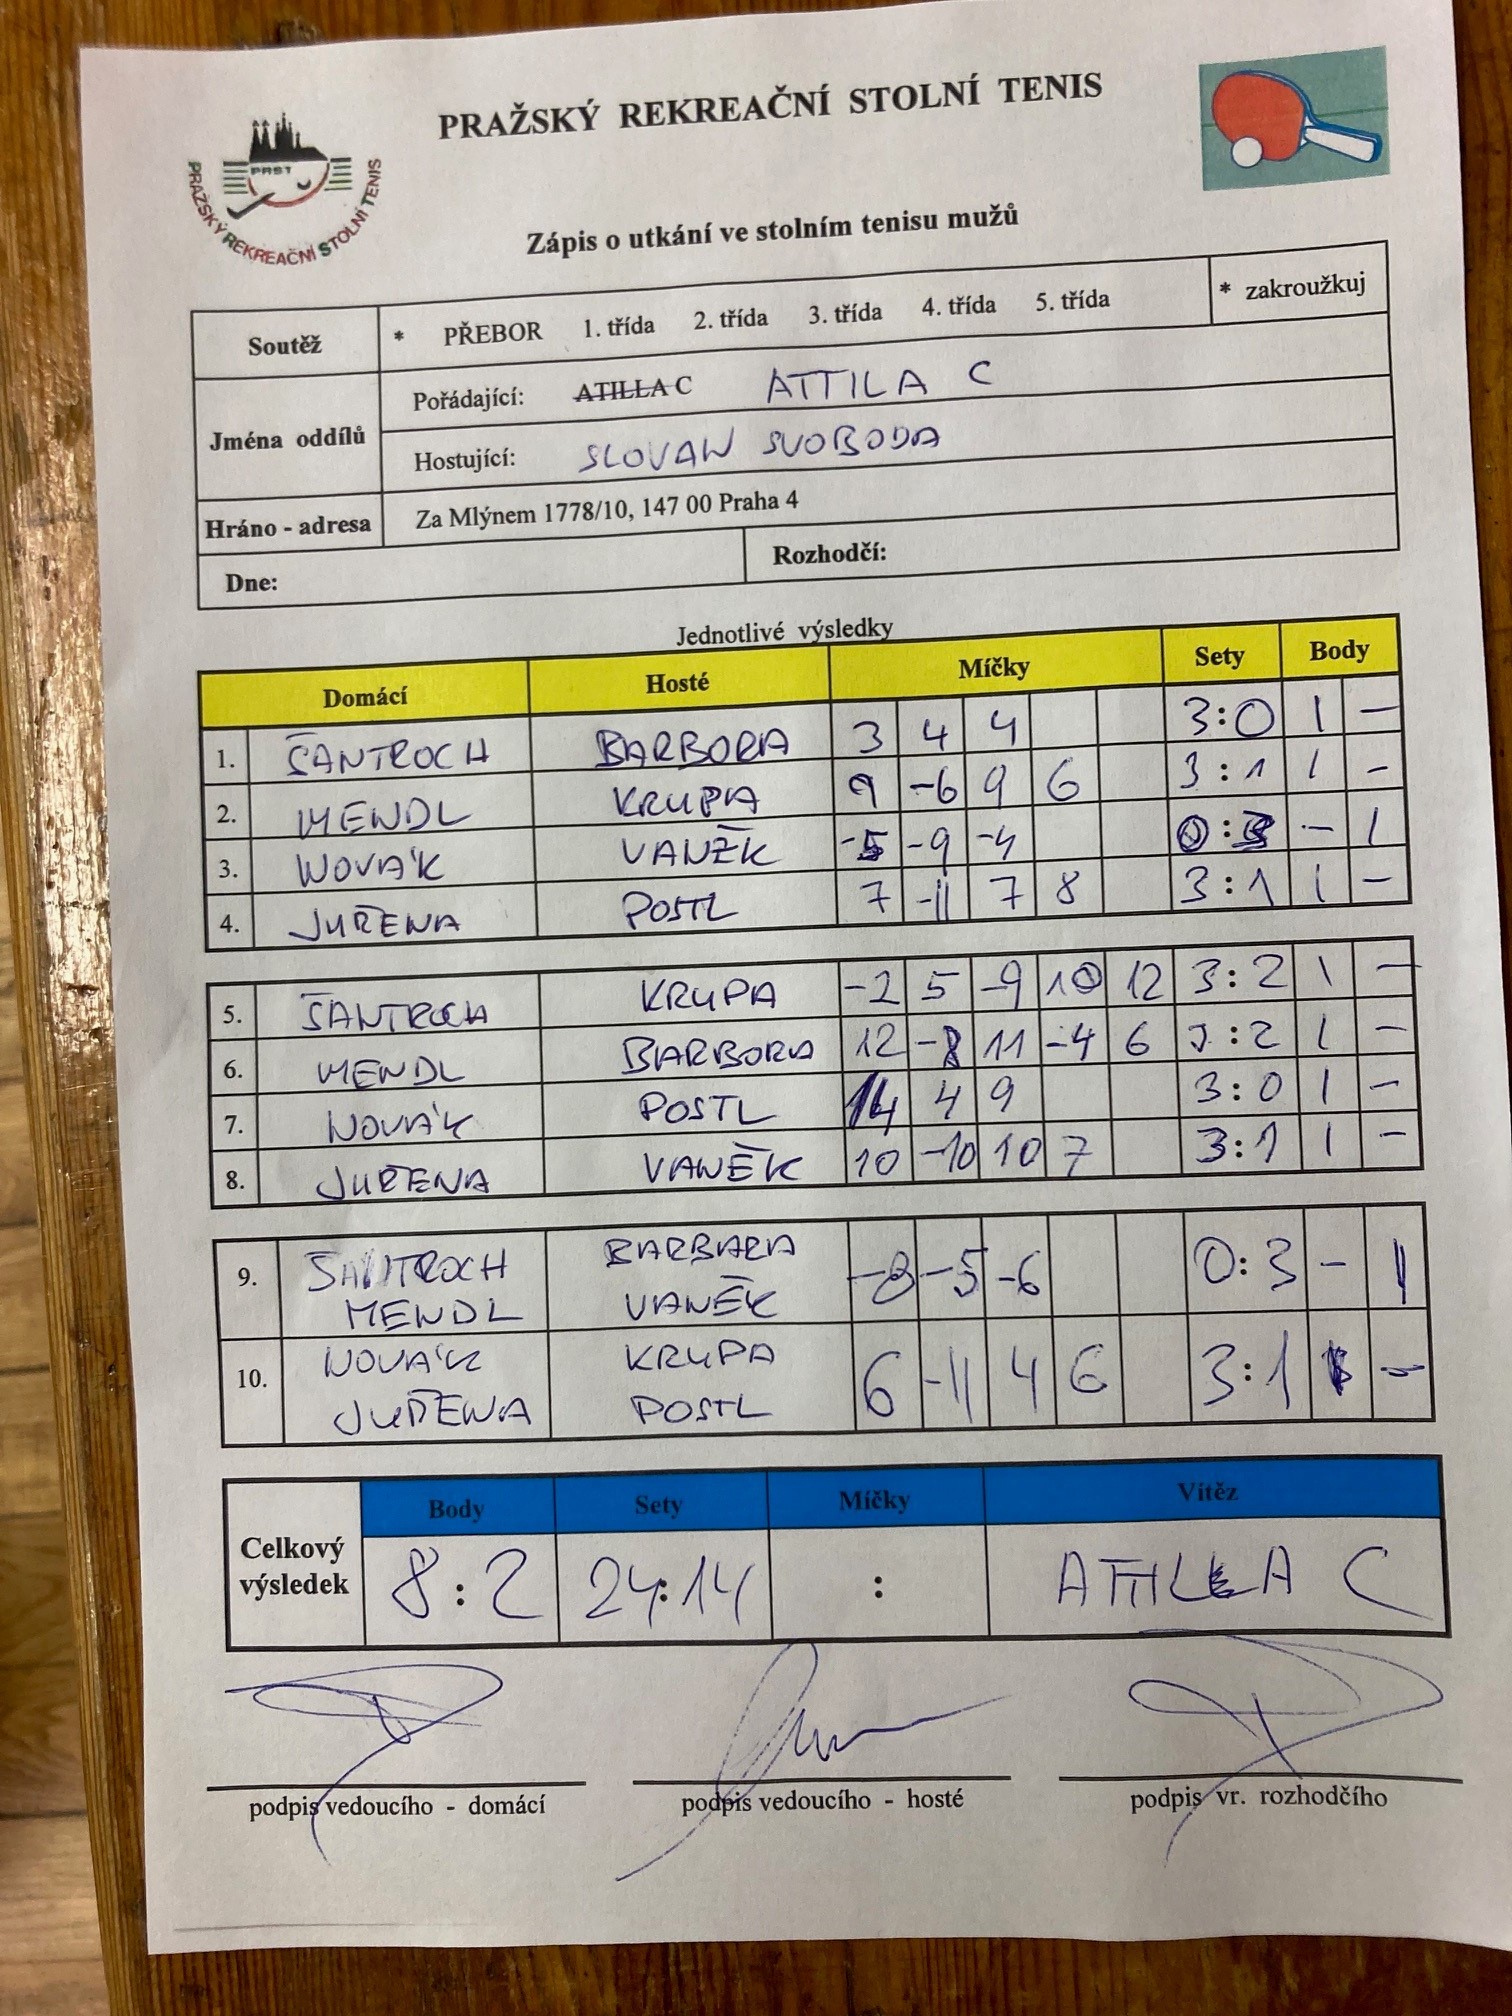 PRAŽSKÝ REKREAČNÍ STOLNÍ TENIS
PRST
PRAŽSKÝ REKREAČNÍ STOLNÍ TENIS
Zápis o utkání ve stolním tenisu mužů
Soutěž * PŘEBOR 1. třída 2. třída 3. třída 4. třída 5. třída * zakroužkuj
Jména oddílů
Pořádající: ATILLA C ATTILA C
Hostující: SLOVAN SVOBODA
Hráno - adresa Za Mlýnem 1778/10, 147 00 Praha 4
Dne: Rozhodčí:
Jednotlivé výsledky
Domácí Hosté Míčky Sety Body
1. ŠANTROCH BARBORA 3 4 4 3:0 1 -
2. MENDL KRUPA 9 -6 9 6 3:1 1 -
3. NOVÁK VANĚK -5 -9 -4 0:3 - 1
4. JUŘENA POSTL 7 -11 7 8 3:1 1 -
5. ŠANTROCH KRUPA -2 5 -9 10 12 3:2 1 -
6. MENDL BARBORA 12 -8 11 -4 6 3:2 1 -
7. NOVÁK POSTL 14 4 9 3:0 1 -
8. JUŘENA VANĚK 10 -10 10 7 3:1 1 -
9. ŠANTROCH BARBARA -8 -5 -6 0:3 - 1
MENDL VANĚK
10. NOVÁK KRUPA 6 -11 4 6 3:1 1 -
JUŘENA POSTL
Body Sety Míčky Vítěz
Celkový výsledek 8:2 24:14 : ATTILA C
podpis vedoucího - domácí podpis vedoucího - hosté podpis vr. rozhodčího